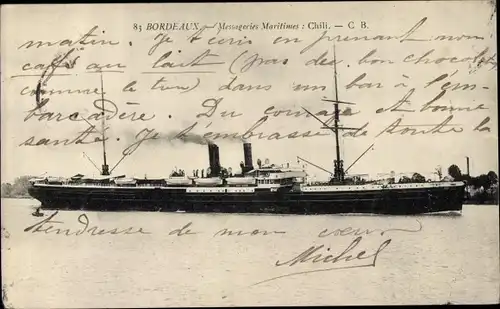 83 BORDEAUX — Messageries Maritimes : Chili. — C. B.
matin. Je t'écris en prenant mon
café au lait (pas des bon chocolat
comme le tien) dans un bar à l'em-
barcadère. Du courage et bonne
santé. Je t'embrasse de toute la
tendresse de mon cœur
Michel